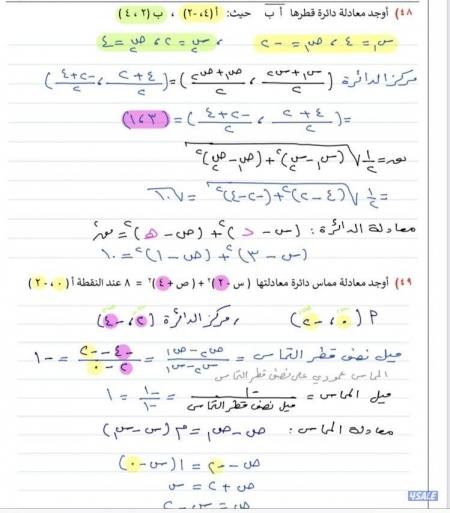 ٤٨) أوجد معادلة دائرة قطرها أ ب حيث: أ (٤، -٢) ، ب (٢، ٤)
س₁ = ٤ ، ص₁ = -٢ ، س₂ = ٢ ، ص₂ = ٤
مركز الدائرة (س₁+س₂/٢ ، ص₁+ص₂/٢) = (٤+٢/٢ ، -٢+٤/٢)
= (٤+٢/٢ ، -٢+٤/٢) = (٣، ١)
نق = ١/٢ √(س₁-س₂)² + (ص₁-ص₂)²
= ١/٢ √(٤-٢)² + (-٢-٤)² = √١٠
معادلة الدائرة: (س-د)² + (ص-هـ)² = نق²
(س-٣)² + (ص-١)² = ١٠
٤٩) أوجد معادلة مماس دائرة معادلتها (س-٢)² + (ص+٤)² = ٨ عند النقطة أ (٠، -٢)
أ (٠، -٢) ، مركز الدائرة (٢، -٤)
ميل نصف قطر التماس = ص₂-ص₁/س₂-س₁ = -٤--٢/٢-٠ = -١
المماس عمودي على نصف قطر التماس
ميل المماس = -١/ميل نصف قطر التماس = -١/-١ = ١
معادلة المماس: ص-ص₁ = م (س-س₁)
ص--٢ = ١(س-٠)
ص+٢ = س
ص = س-٢
4SALE